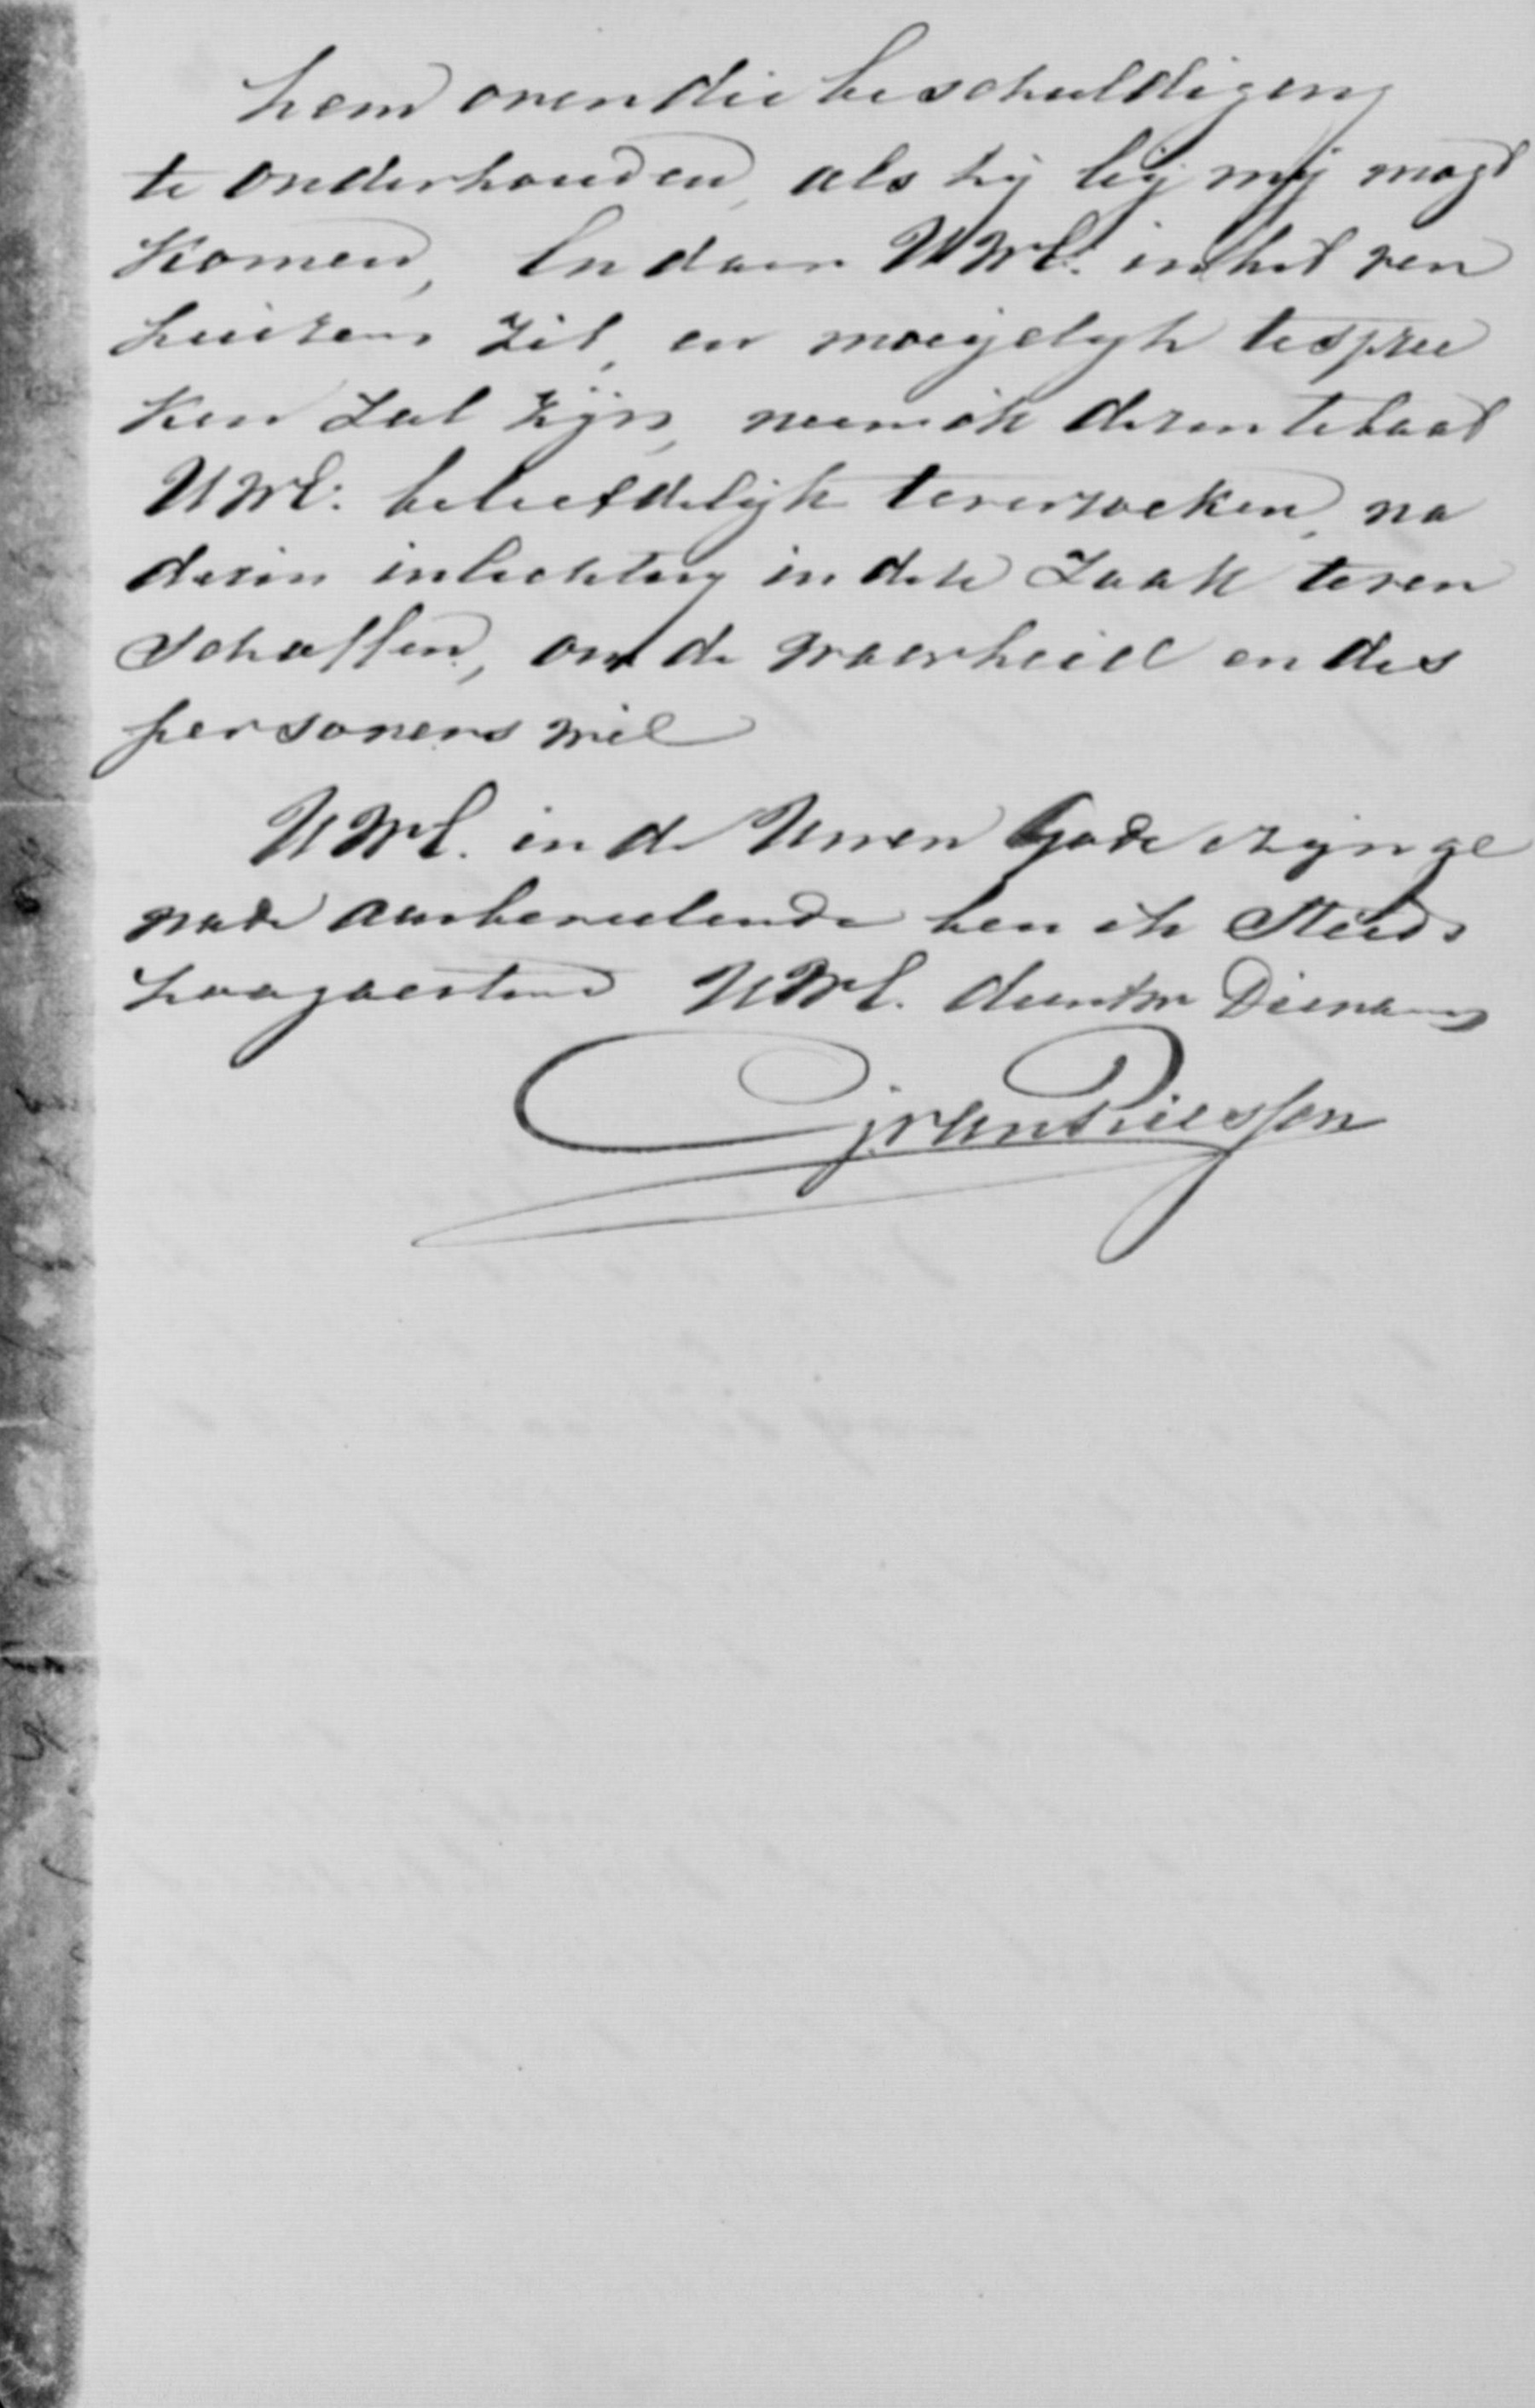 hem over die beschuldiging
te onderhouden, als hij bij mij mogt
komen, En daar UWE. in het ver
huizen zit, en moeijelijk te spree
ken zal zijn, neem ik dezen te baat
UWE. beleefdelijk te verzoeken, na
dezen inlichting in deze Zaak te ver
schaffen, om de waarheid en des
persoonens wil
UWE. in de Uwen Gode en zijn ge
nade aanbevelende ben ik Steeds
hoogachtend UWE. Dienaar